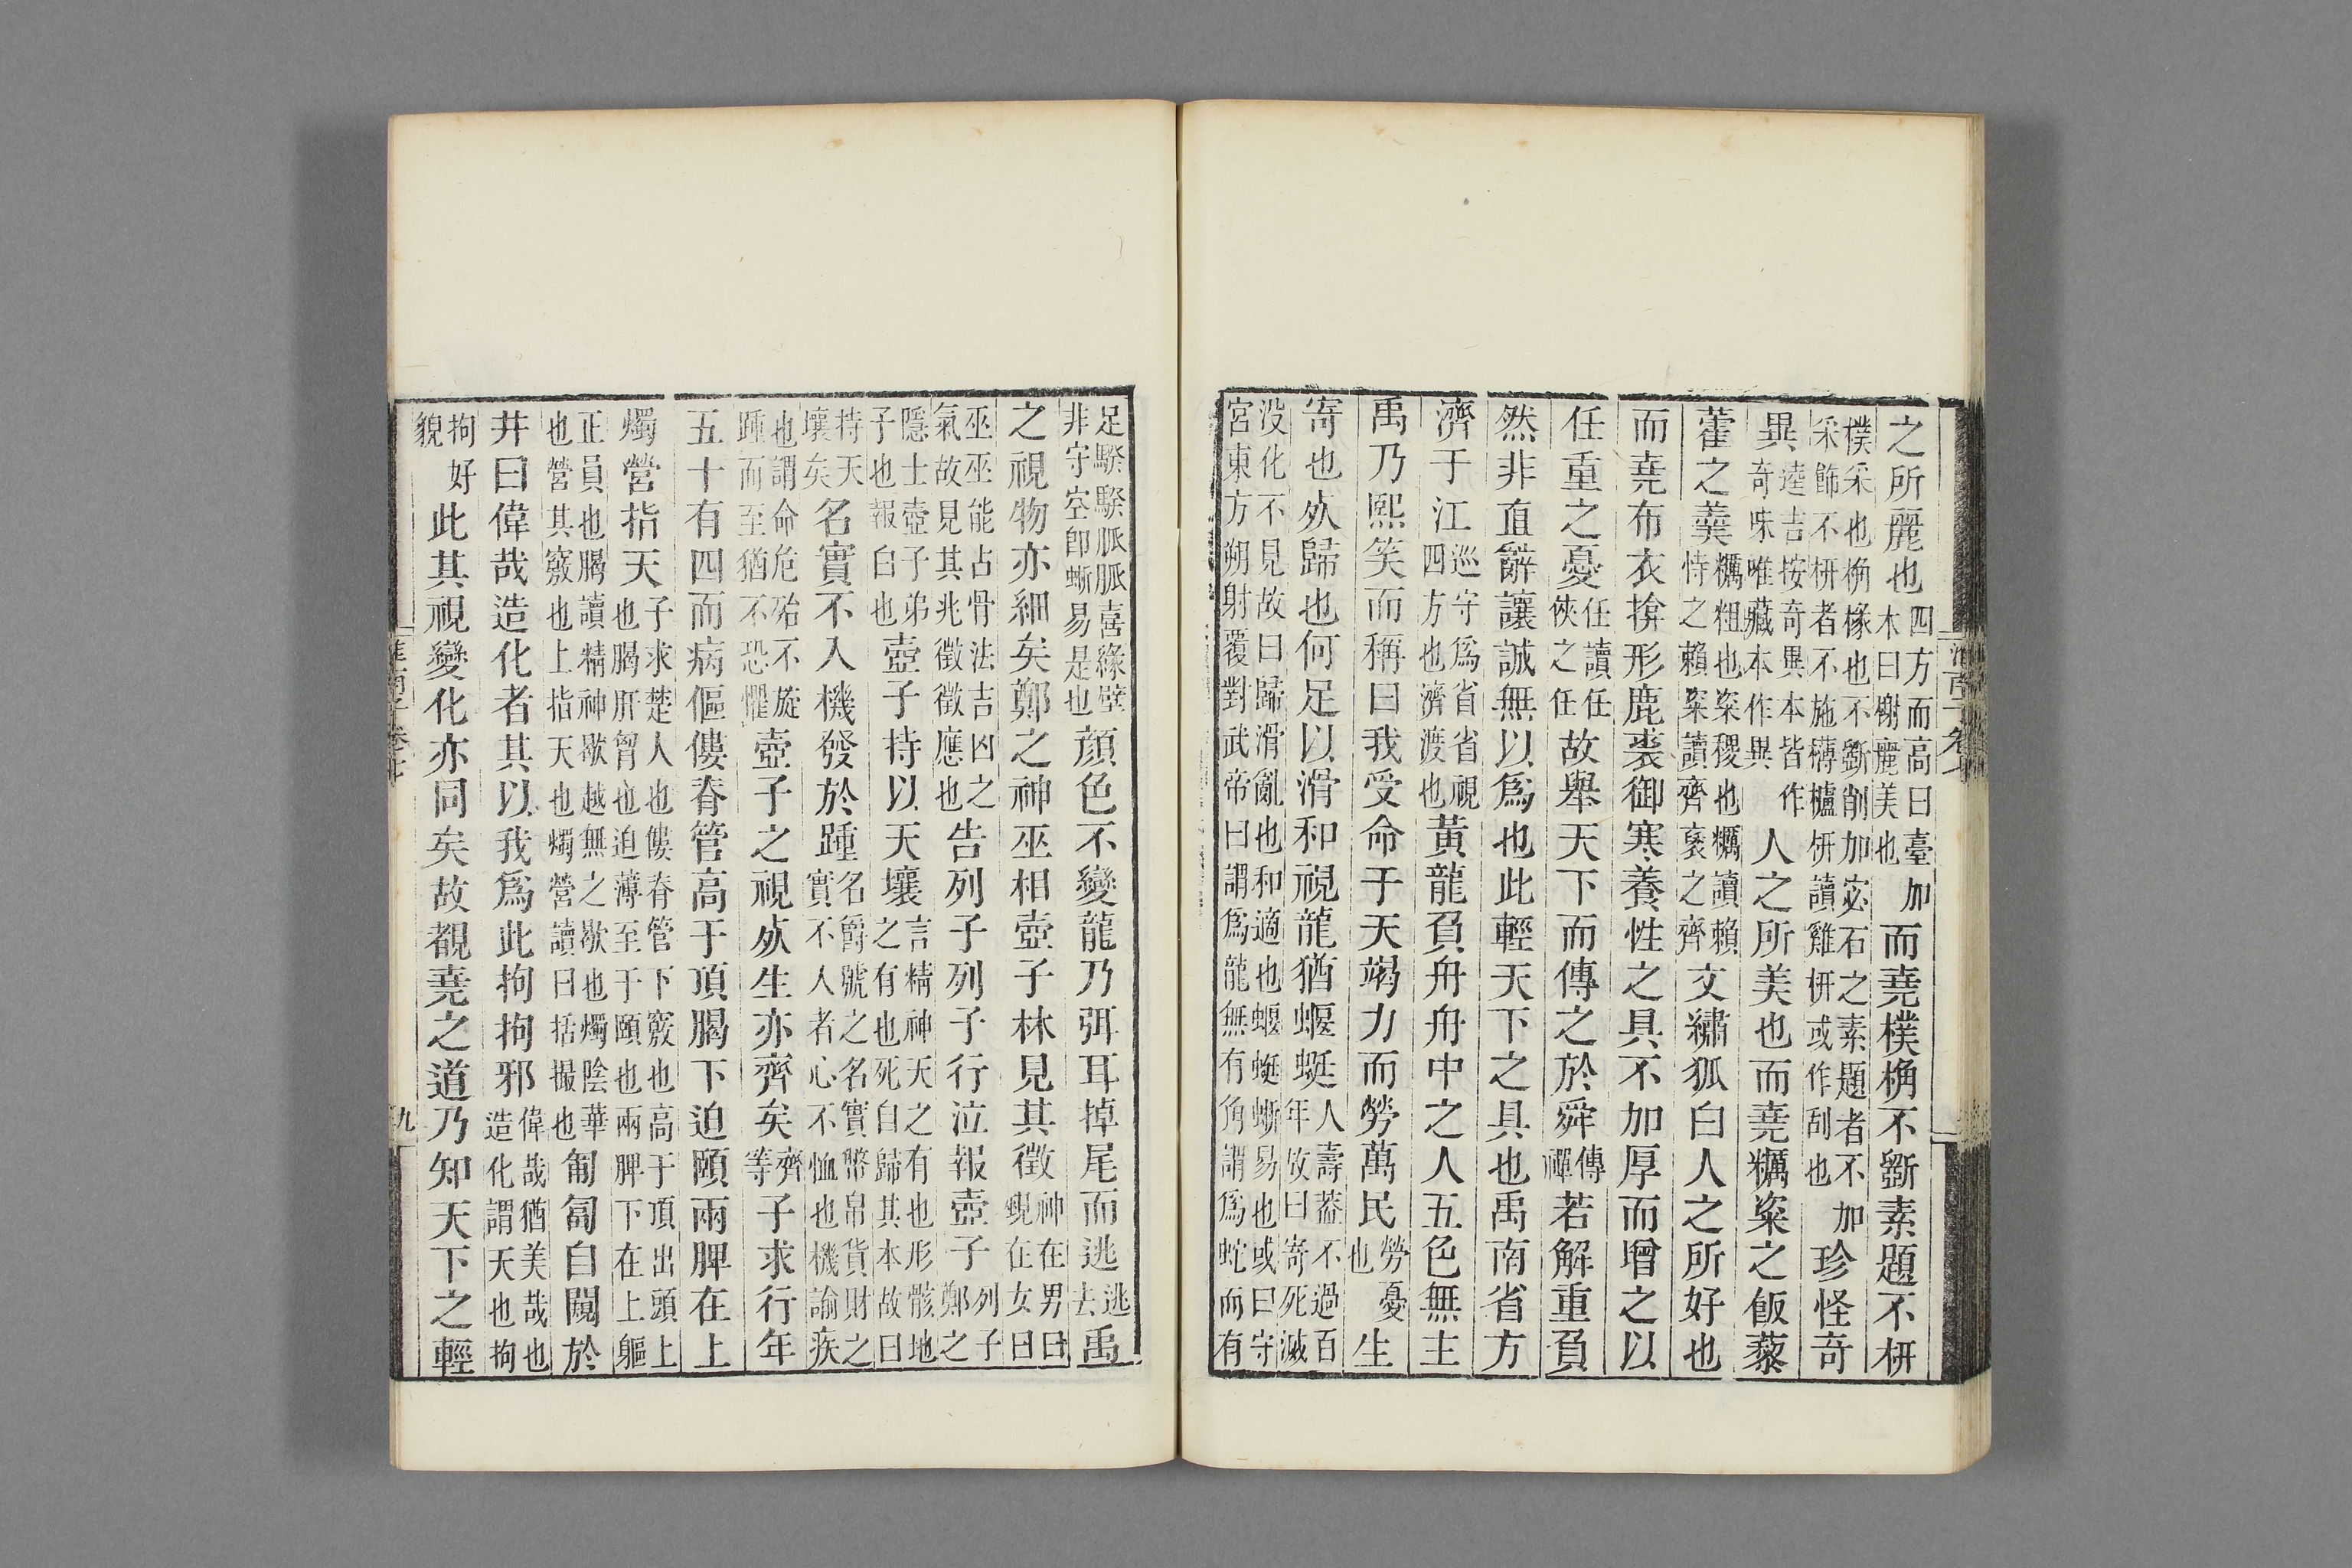 之所麗也四方而高曰臺加木曰榭麗美也而堯樸桷不斵素題不枅
樸采也桷椽也不斵削加宓石之素題者不加采飾不枅者不施欂櫨枅讀雞枅或作刮也珍怪奇
異逵吉按奇異本皆作奇味唯藏本作異人之所美也而堯糲粢之飯藜
藿之羹糲粗也粢稷也糲讀賴恃之賴粢讀齊衰之齊文繡狐白人之所好也
而堯布衣揜形鹿裘御寒養性之具不加厚而增之以
任重之憂任讀任俠之任故舉天下而傳之於舜傳禪若解重負
然非直辭讓誠無以爲也此輕天下之具也禹南省方
濟于江巡守爲省省視四方也濟渡也黃龍負舟舟中之人五色無主
禹乃熙笑而稱曰我受命于天竭力而勞萬民勞憂也生
寄也死歸也何足以滑和視龍猶蝘蜓人壽蓋不過百年故曰寄死滅
没化不見故曰歸滑亂也和適也蝘蜓蜥易也或曰守宮東方朔射覆對武帝曰謂爲龍無有角謂爲蛇而有
足騤騤脈脈喜緣壁非守空卽蜥易是也顏色不變龍乃弭耳掉尾而逃逃去禹
之視物亦細矣鄭之神巫相壺子林見其徵神在男曰覡在女曰
巫巫能占骨法吉凶之氣故見其兆徵徵應也告列子列子行泣報壺子列子鄭之
隱士壺子弟子也報白也壺子持以天壤言精神天之有也形骸地之有也死自歸其本故曰
持天壤矣名實不入機發於踵名爵號之名實幣帛貨財之實不人者心不恤也機諭疾
也謂命危殆不旋踵而至猶不恐懼壺子之視死生亦齊矣齊等子求行年
五十有四而病傴僂脊管高于頂𦝫下迫頤兩脾在上
燭營指天子求楚人也僂脊管下竅也高于頂出頭上也𦝫肝胷也迫薄至于頤也兩脾下在上軀
正員也𦝫讀精神歇越無之歇也燭陰華也營其竅也上指天也燭營讀曰括撮也匍匐自闚於
井曰偉哉造化者其以我爲此拘拘邪偉哉猶美哉也造化謂天也拘
拘好貌此其視變化亦同矣故覩堯之道乃知天下之輕
淮南子卷七
九